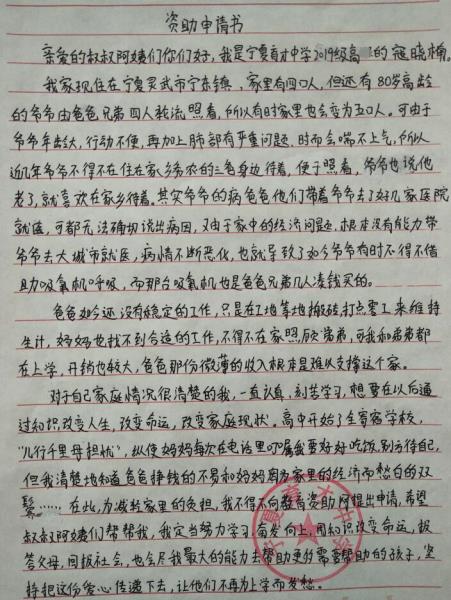 资助申请书
亲爱的叔叔阿姨们你们好,我是宁夏育才中学2019级高的寇晓楠。
我家现住在宁夏灵武市宁东镇,家里有四口人,但还有80岁高龄
的爷爷由爸爸兄弟四人轮流照看,所以有时家里也会变为五口人。可由于
爷爷年龄大,行动不便,再加上肺部有严重问题,时而会喘不上气,所以
近几年爷爷不得不在住在家乡务农的三爸身边待着,便于照看,爷爷也说他
老了,就喜欢在家乡待着。其实爷爷的病爸爸他们带着爷爷去了好几家医院
就医,可都无法确切说出病因,又由于家中的经济问题,根本没有能力带
爷爷去大城市就医,病情不断恶化,也就导致了如今爷爷有时不得不借
助吸氧机呼吸,而那台吸氧机也是爸爸兄弟几人凑钱买的。
爸爸如今还没有稳定的工作,只是在工地等地搬砖,打点零工来维持
生计,妈妈也找不到合适的工作,不得不在家照顾弟弟,可我和弟弟都
在上学,开销也较大,爸爸那份微薄的收入根本是难以支撑这个家。
对于自己家庭情况很清楚的我,一直认真,刻苦学习,想要在以后通
过知识改变人生,改变命运,改变家庭现状。高中开始了生寄宿学校,
“儿行千里母担忧”,纵使妈妈每次在电话里叮嘱我要好好吃饭,别亏待自己,
但我清楚地知道爸爸挣钱的不易和妈妈因为家里的经济而愁白的双
鬓……在此,为减轻家里的负担,我不得不向教育资助网提出申请,希望
叔叔阿姨们帮帮我,我定当努力学习,奋发向上,用知识改变命运,报
答父母,回报社会,也会尽我最大的能力去帮助更的需要帮助的孩子,坚
持把这份爱心传递下去,让他们不再为上学而发愁。